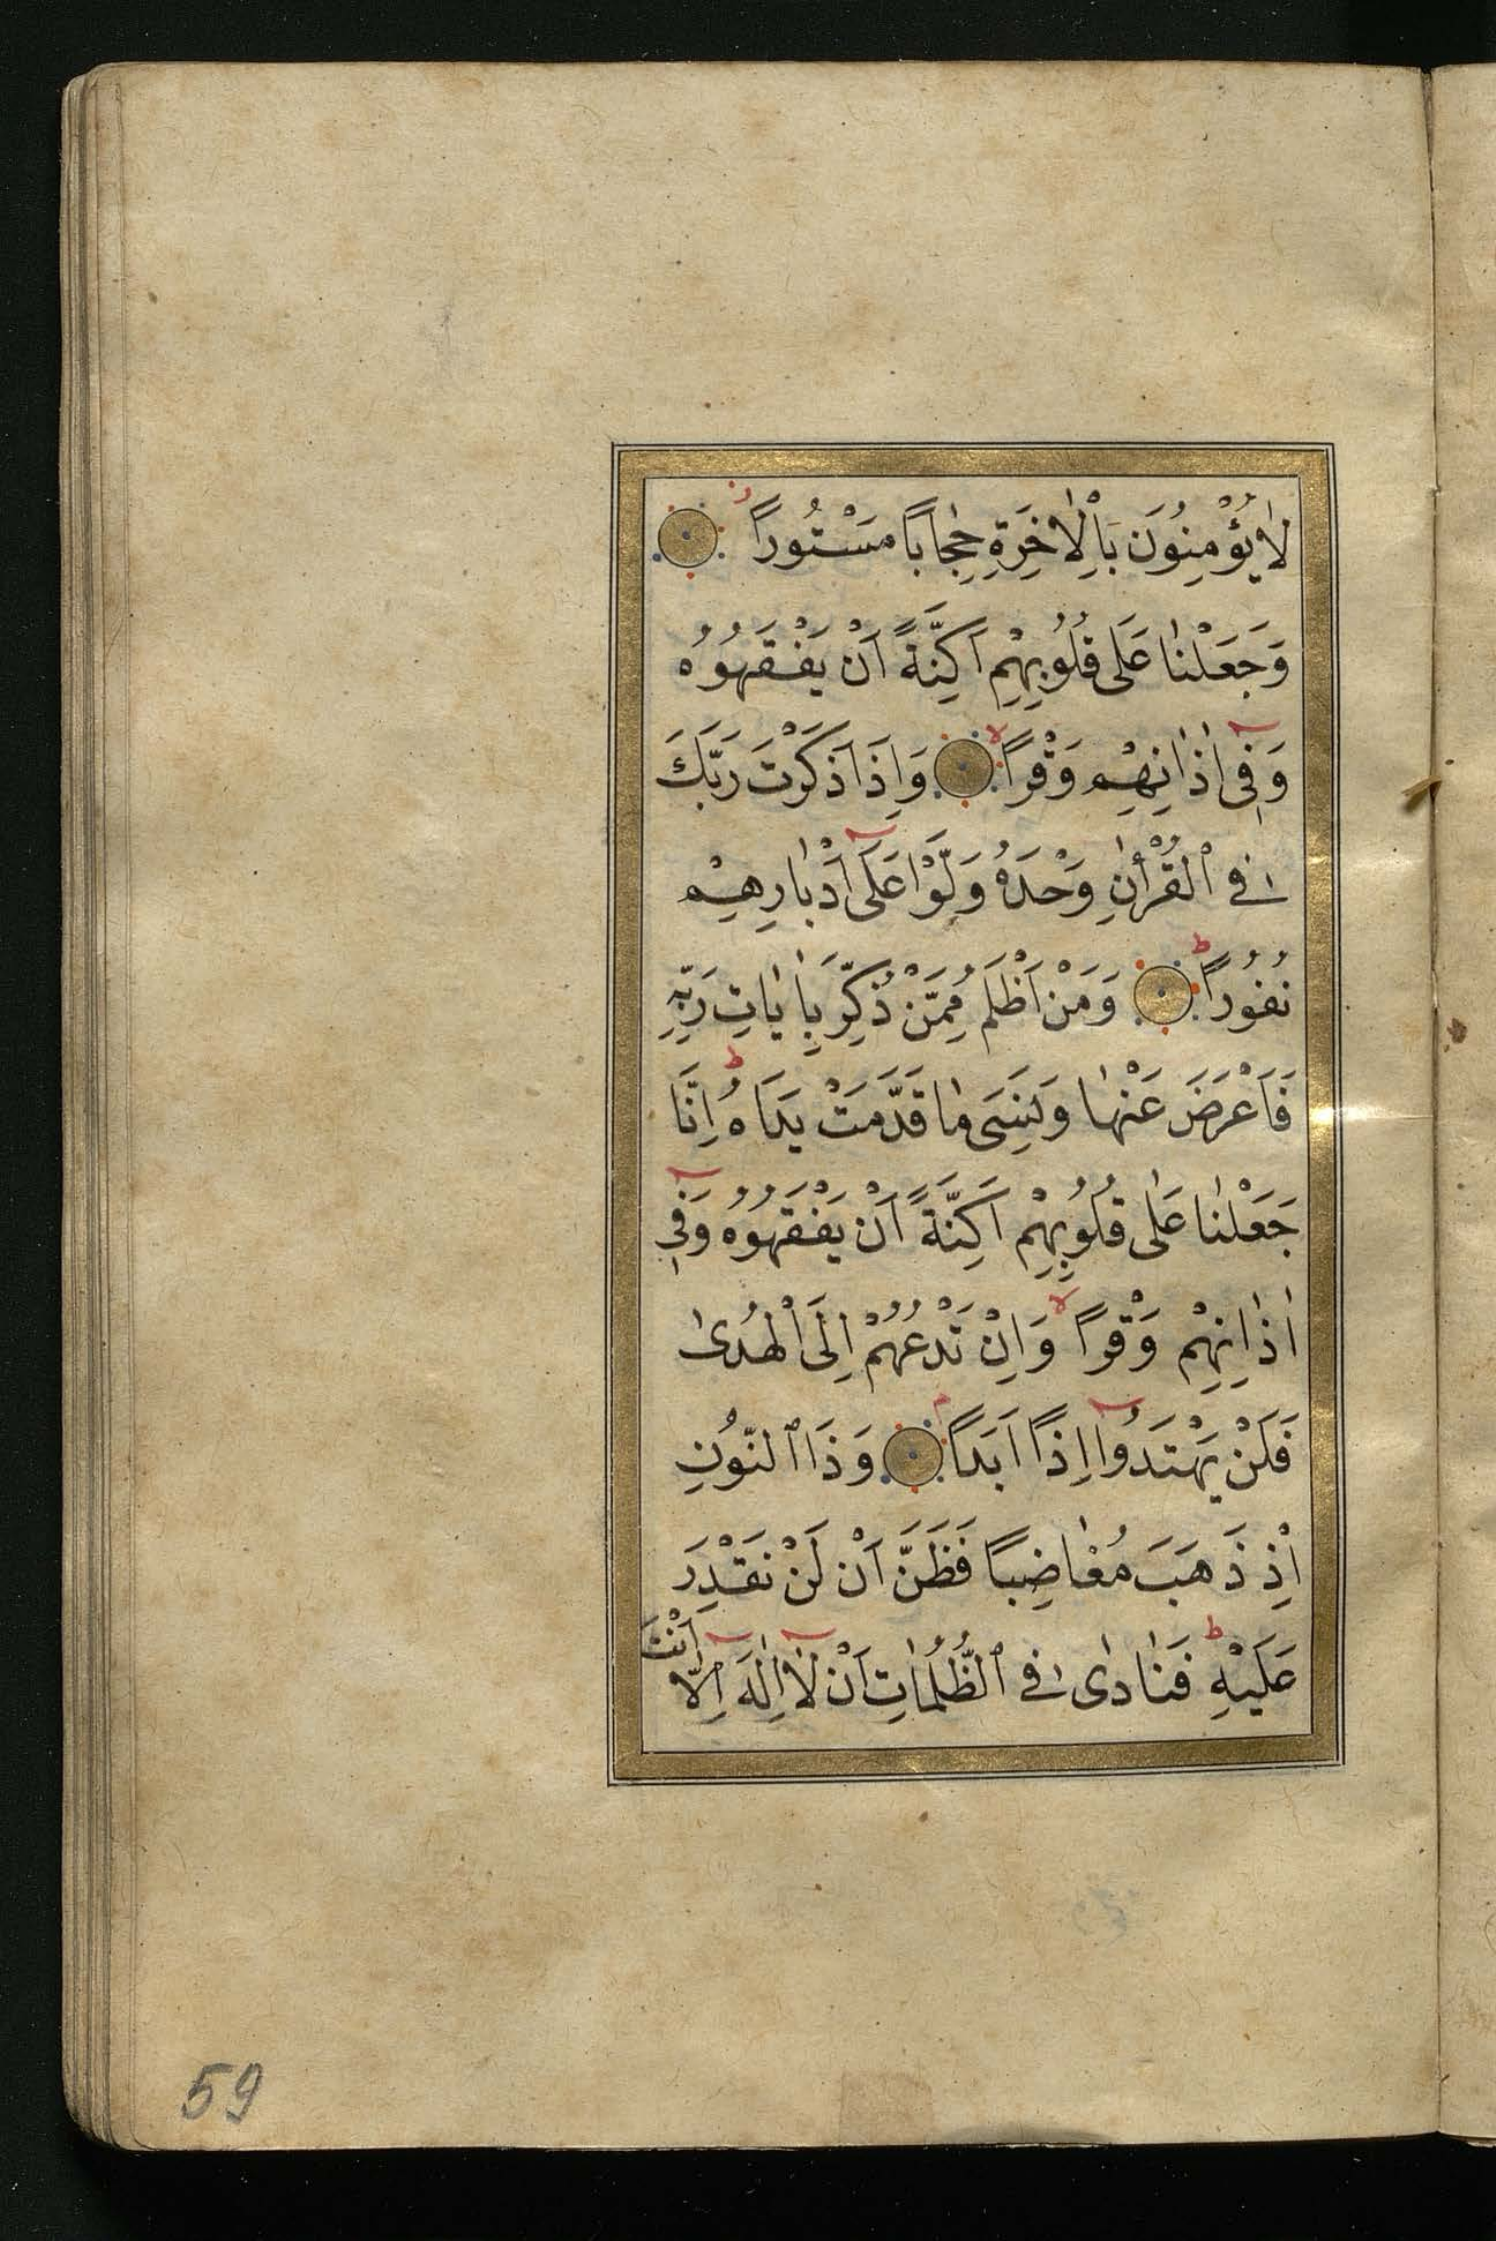 لَا يُؤْمِنُونَ بِاْلاٰخِرَةِ حِجَابًا مَسْتُورًا ز
وَجَعَلْنَا عَلٰى قُلُوبِهِمْ اَكِنَّةً اَنْ يَفْقَهُوهُ
وَفِى اٰذَانِهِمْ وَقْرًا لا وَاِذَا ذَكَرْتَ رَبَّكَ
فِى ٱلْقُرْاٰنِ وَحْدَهُ وَلَّوْا عَلٰى اَدْبَارِهِمْ
نُفُورًا ط وَمَنْ اَظْلَمُ مِمَّنْ ذُكِّرَ بِاٰيَاتِ رَبِّهِ
فَاَعْرَضَ عَنْهَا وَنَسِىَ مَا قَدَّمَتْ يَدَاهُ ط اِنَّا
جَعَلْنَا عَلٰى قُلُوبِهِمْ اَكِنَّةً اَنْ يَفْقَهُوهُ وَفِى
اٰذَانِهِمْ وَقْرًا لا وَاِنْ تَدْعُهُمْ اِلَى الْهُدٰى
فَلَنْ يَهْتَدُوا اِذًا اَبَدًا م وَذَا ٱلنُّونِ
اِذْ ذَهَبَ مُغَاضِبًا فَظَنَّ اَنْ لَنْ نَقْدِرَ
عَلَيْهِ ط فَنَادٰى فِى ٱلظُّلُمَاتِ اَنْ لَا اِلٰهَ اِلَّا اَنْتَ
59